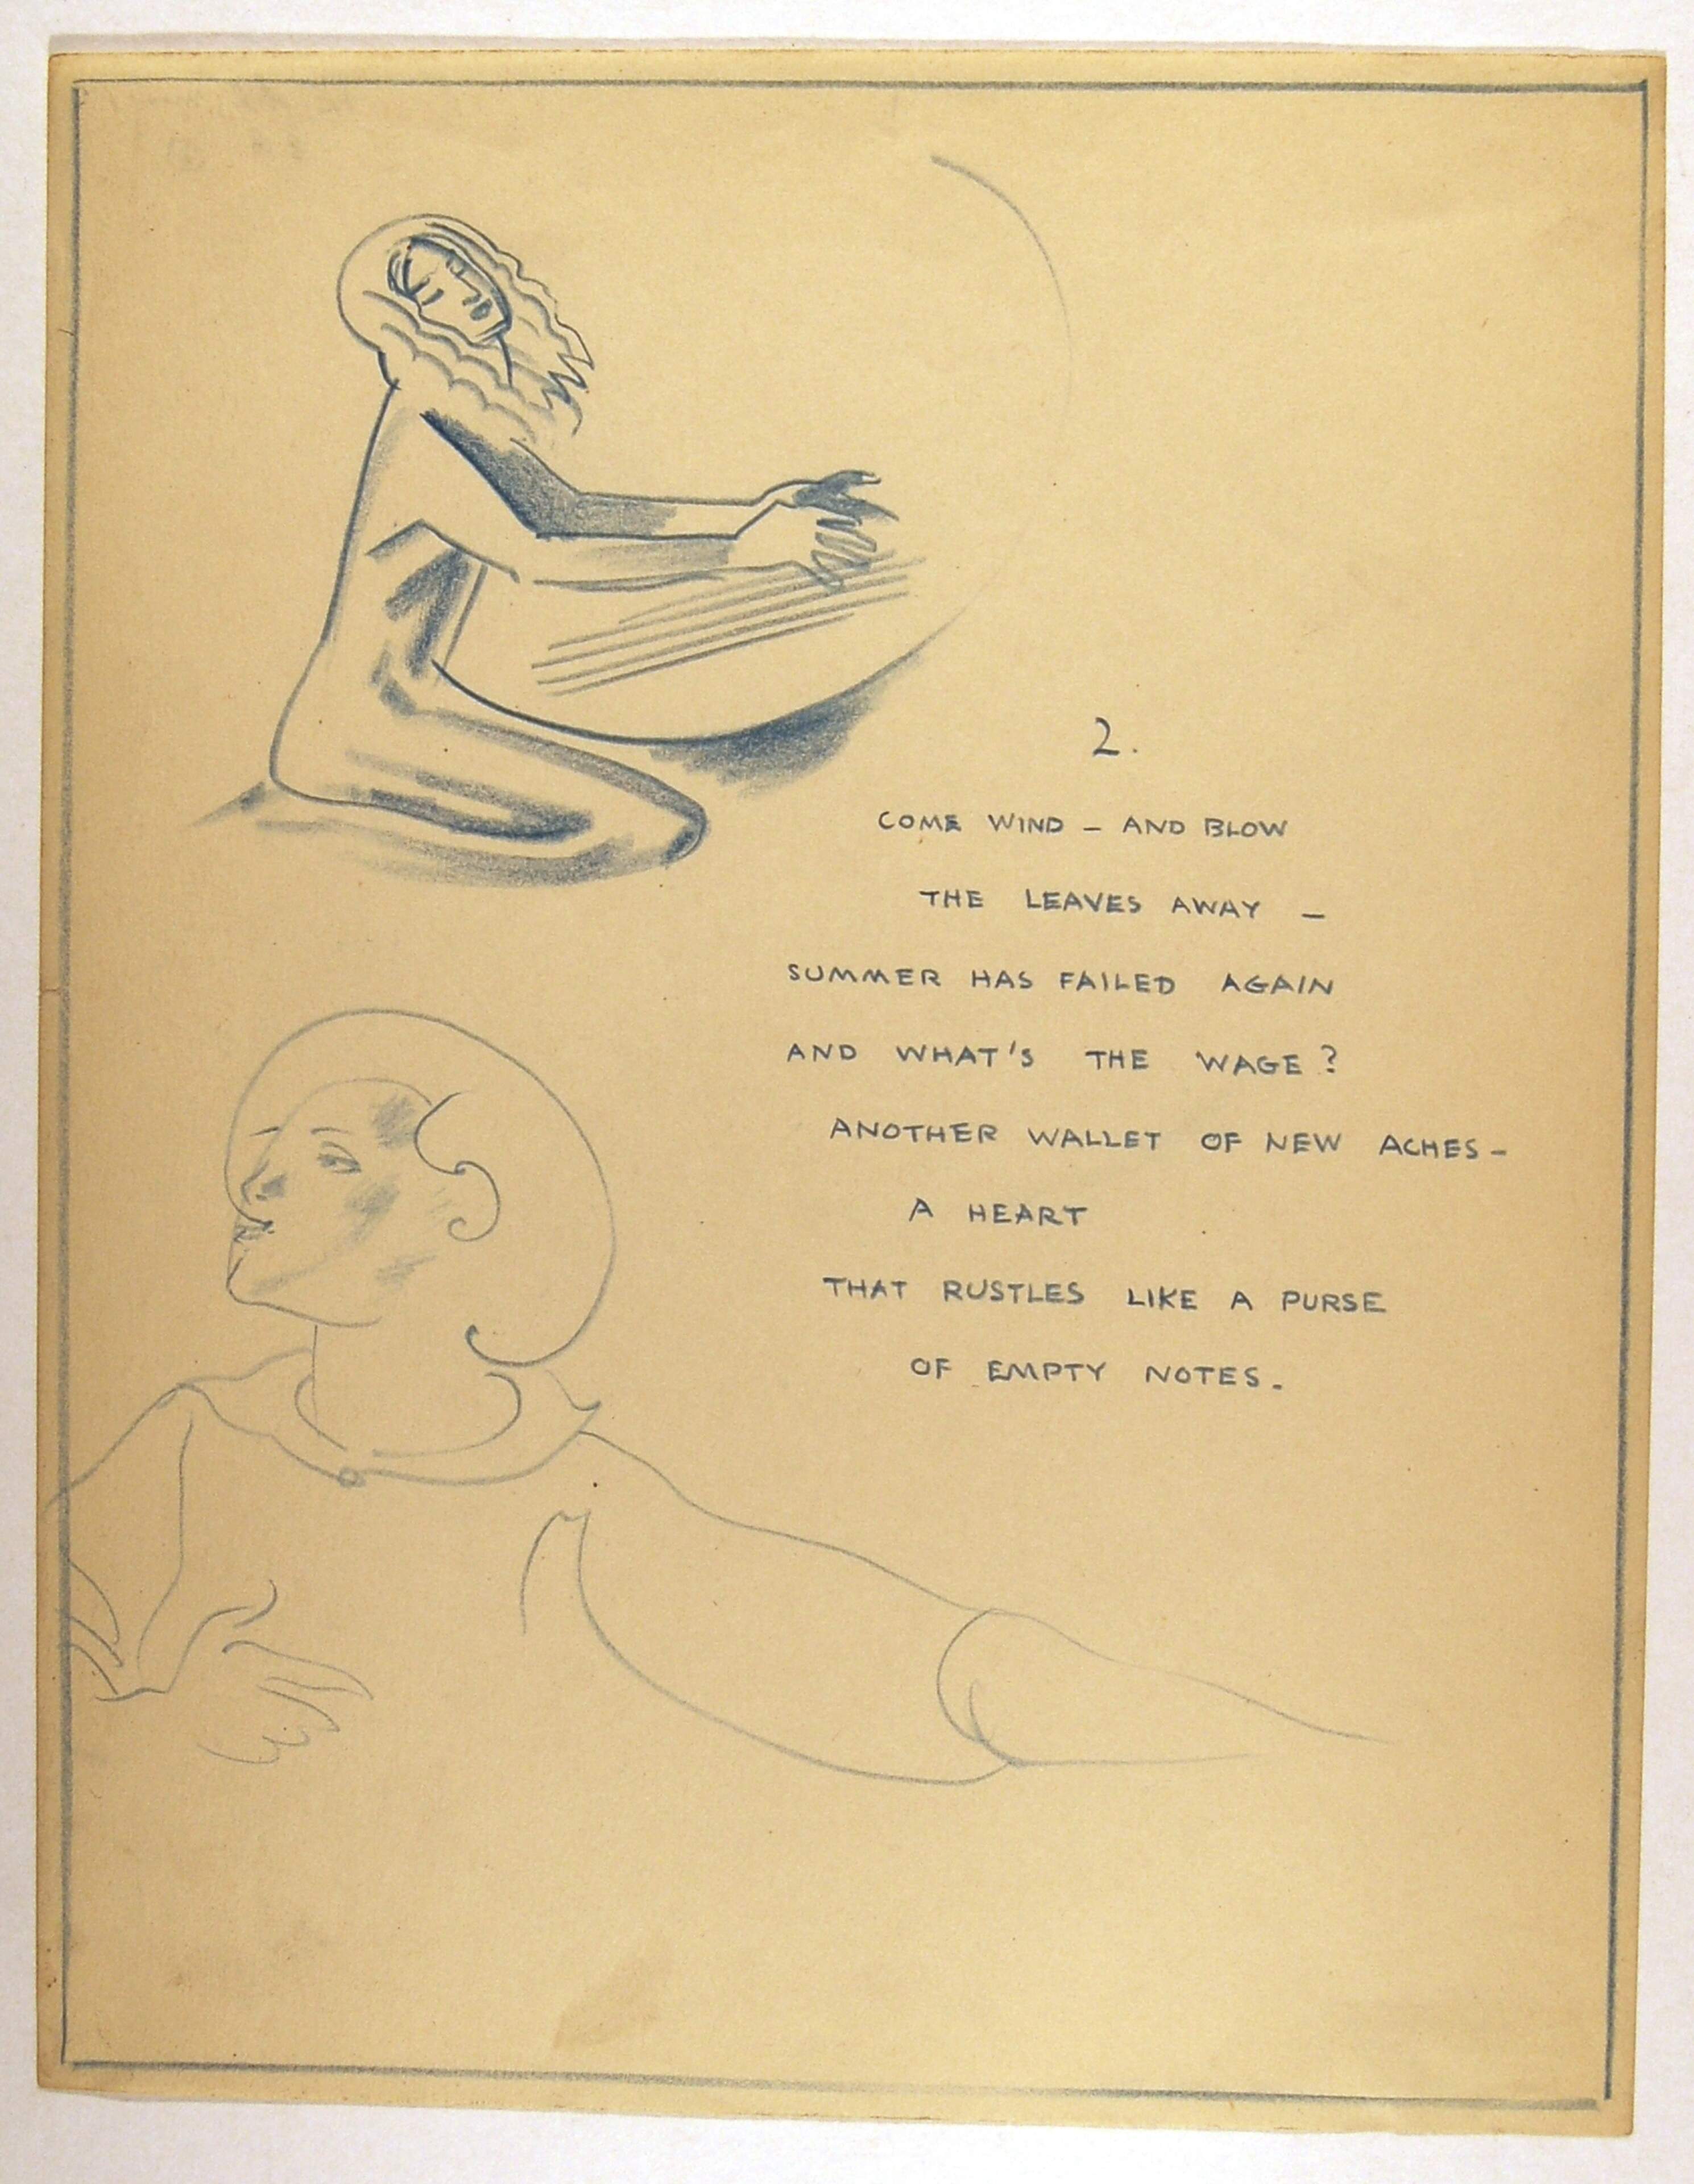 2.
COME WIND – AND BLOW
THE LEAVES AWAY –
SUMMER HAS FAILED AGAIN
AND WHAT'S THE WAGE?
ANOTHER WALLET OF NEW ACHES –
A HEART
THAT RUSTLES LIKE A PURSE
OF EMPTY NOTES.